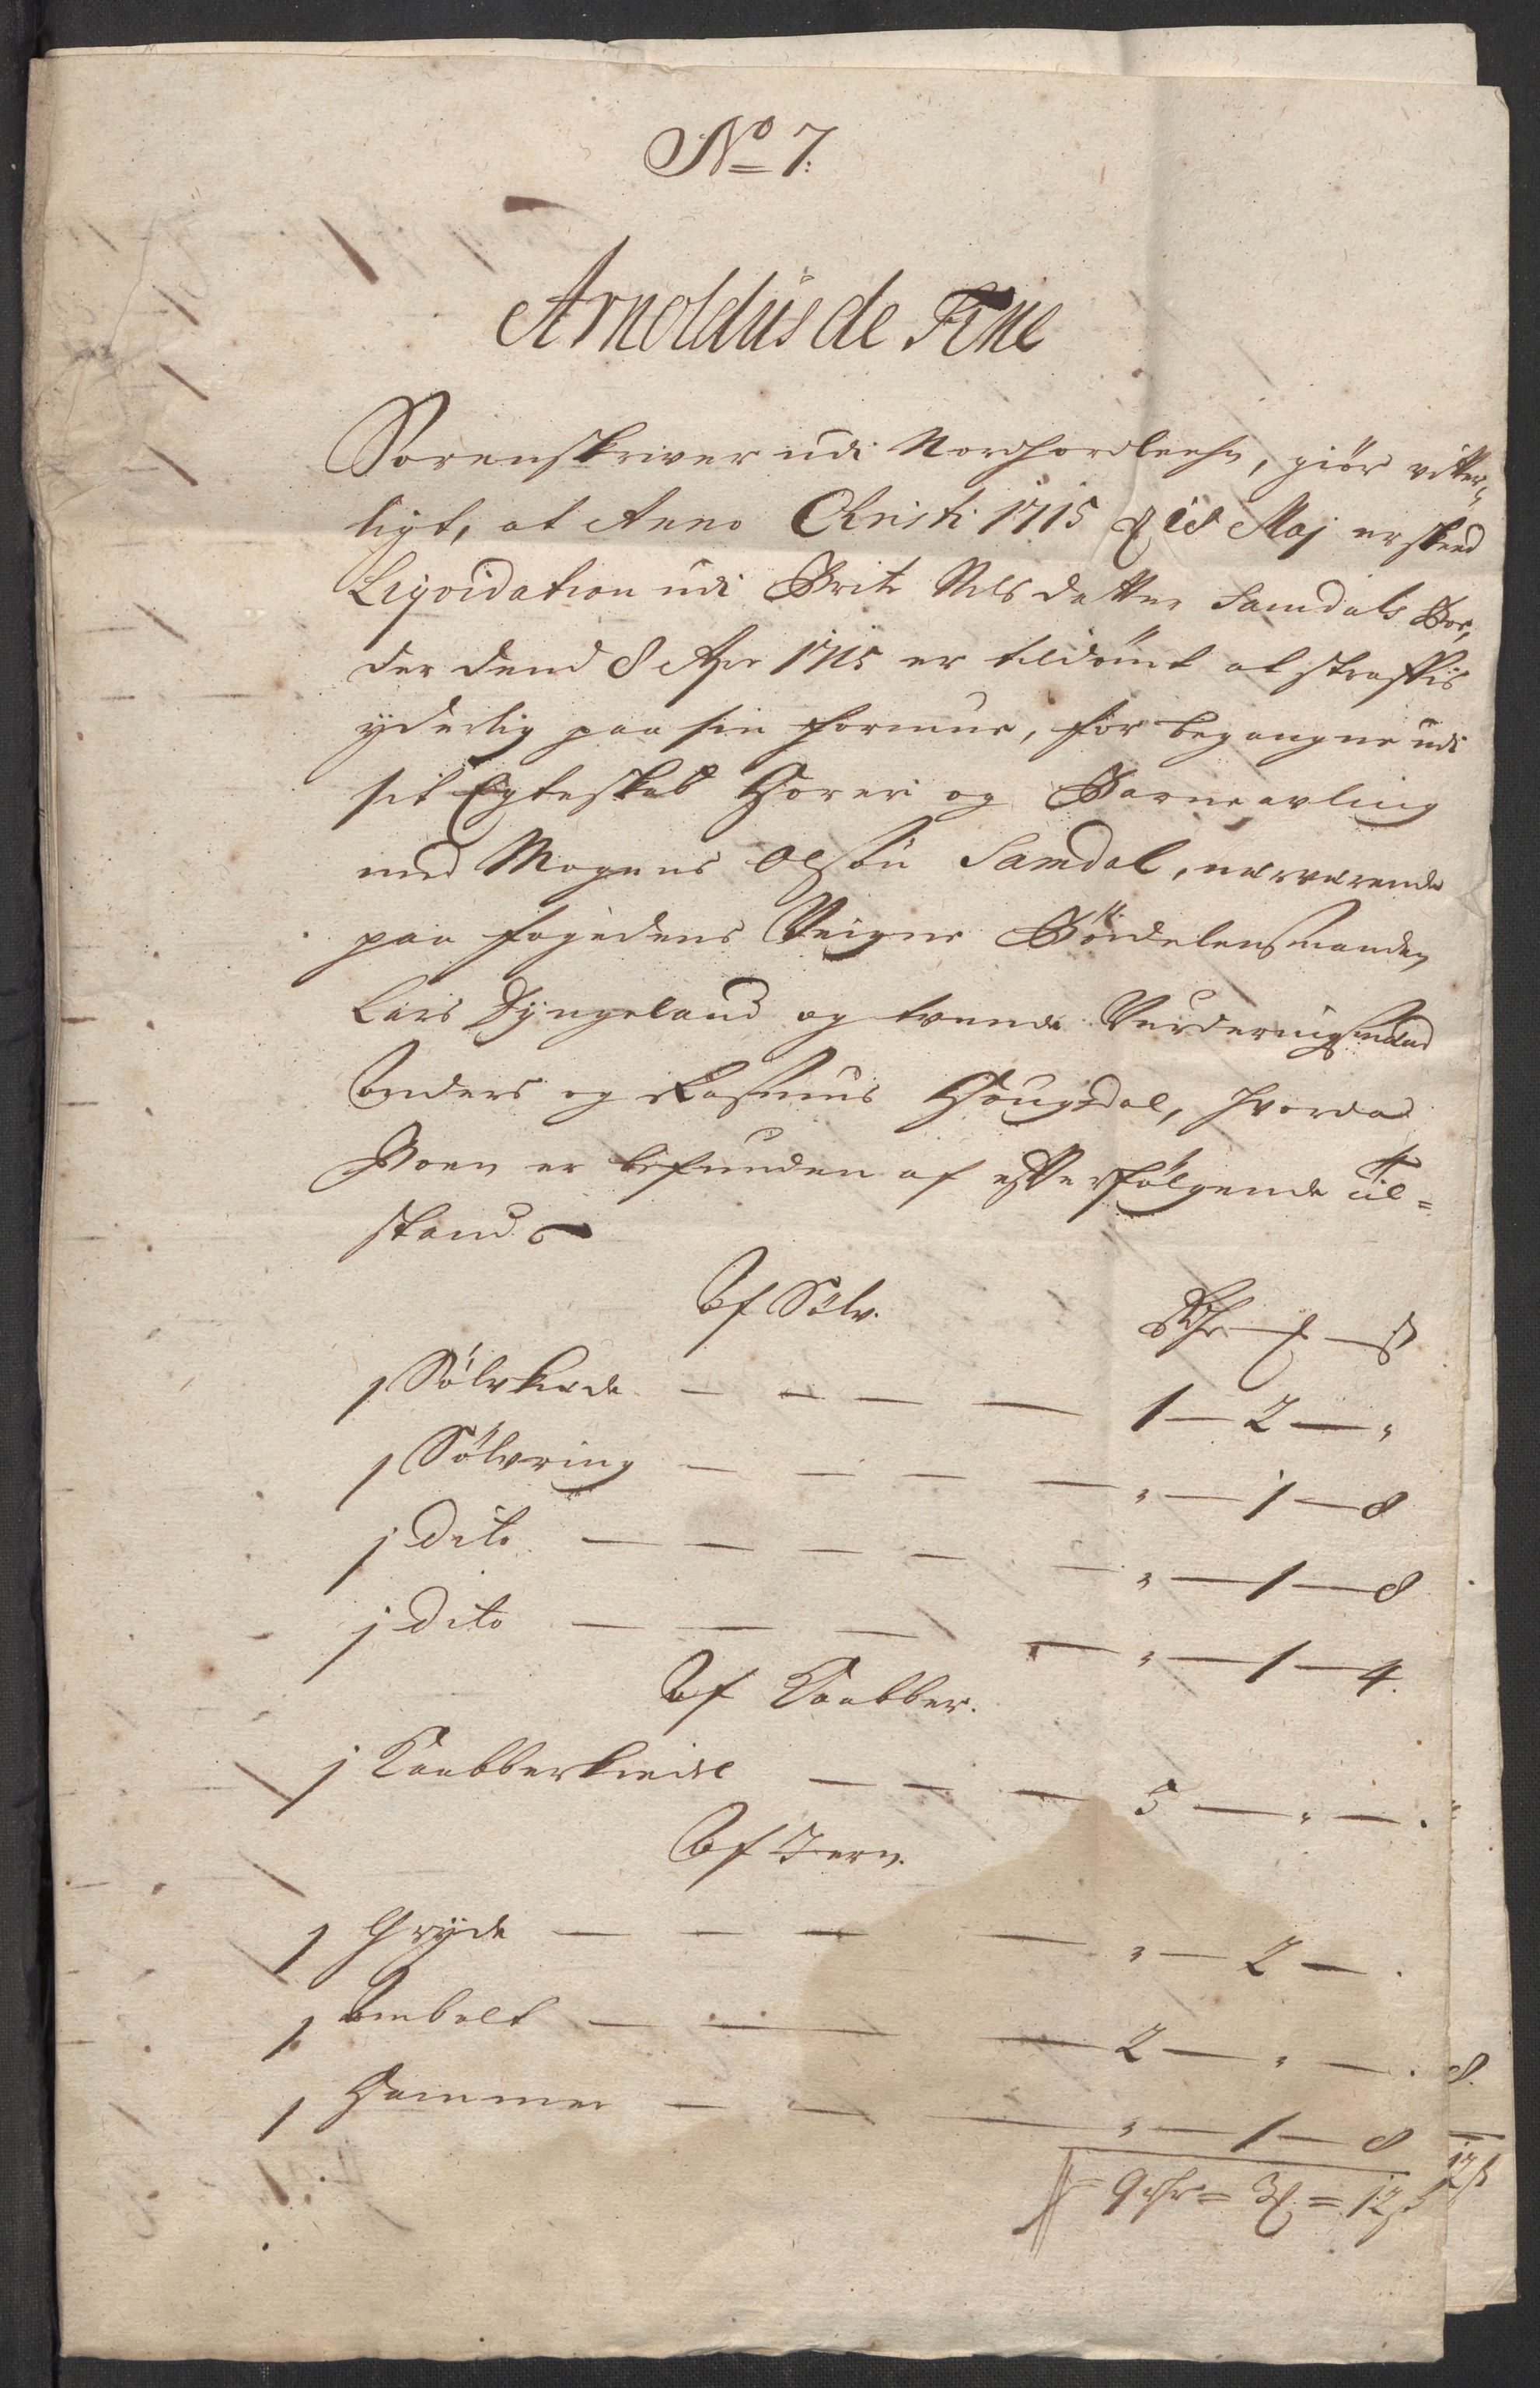 No 7.
Arnoldus de Fine
Sorenskriver udi Nordhordlehn, giör vitter-
ligt, at Anno Christi 1715 d 18 Maj er skeed
Liqvidation udi Brite Nilsdatter Samdals Boe,
der dend 8 Apr 1715 er tildömt at straffis
yderlig paa sin formue, for begangne udi
sit Egteskab Horeri og Barneavling
med Mogens Olsön Samdal, nærværende
paa fogedens Veigne Böidelensmanden
Lars Dyngeland og tvende Vurderingsmænd
Anders og Rasmus Hougdal, hvorda
Boen er befunden af efterfölgende Til=
stand
Af Sölv. Rdr — — ß
1 Sölvkiede — — — — 1 — 2 — "
1 Sölvring — — — — " — 1 — 8
1 Dito — — — — — " — 1 — 8
1 Dito — — — — " — 1 — 4.
Af Kaabber.
1 Kaabberkiedel — — — 5 — " — .
Af Jern.
1 Gryde — — — — " — 2 — .
1 Ambolt — — — 2 — " — . 8.
1 Hammer — — — " — 1 — 8
= 9 rdr = 3 = 12 ß 12 ß